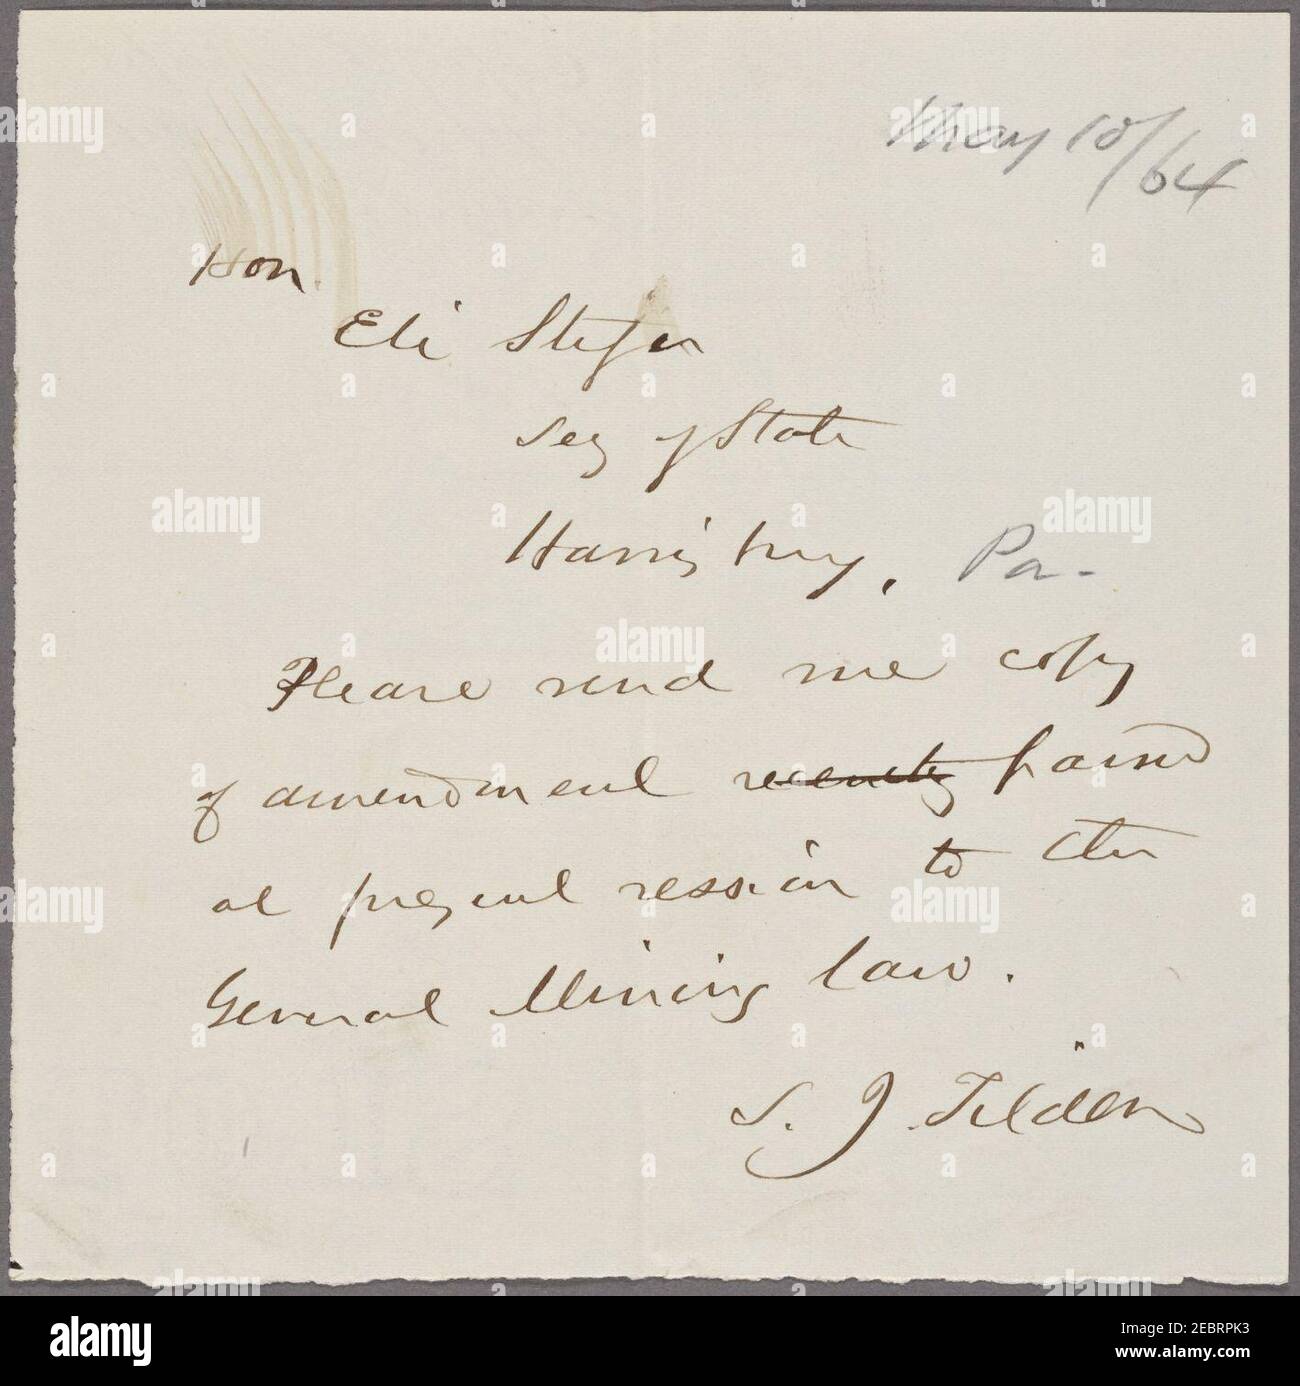 May 10/64
Hon.
Eli Slifer
Secy of State
Harrisburg, Pa-
Please send me copy
of amendment recently passed
at present session to the
General Mining law.
S. J. Tilden
alamy
Image ID: 2EBRPK3
www.alamy.com